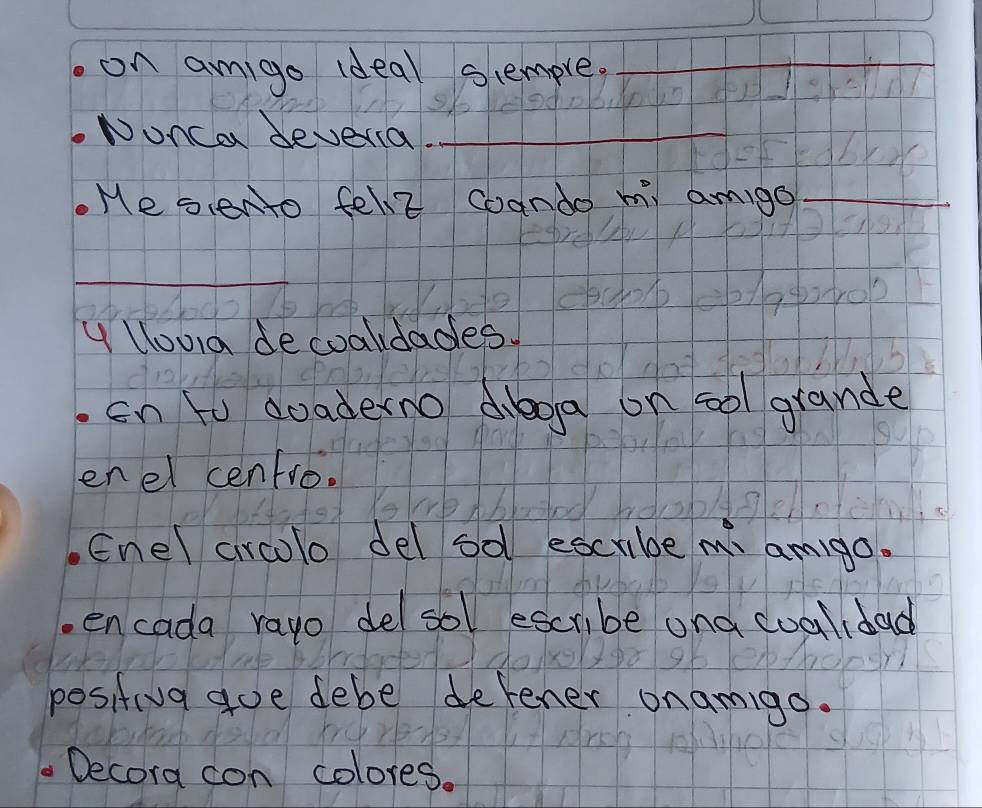 • on amigo ideal siempre. ________
• Nunca deverra. ________
• Me siento feliz coando mi amigo ________
________
4 llovia de coalidades.
• En tu coaderno diboja on sol grande
en el centro.
• Enel circolo del sol escribe mi amigo.
• en cada rayo del sol escribe ona coalidad
positiva qoe debe detener on amigo.
• Decora con colores.